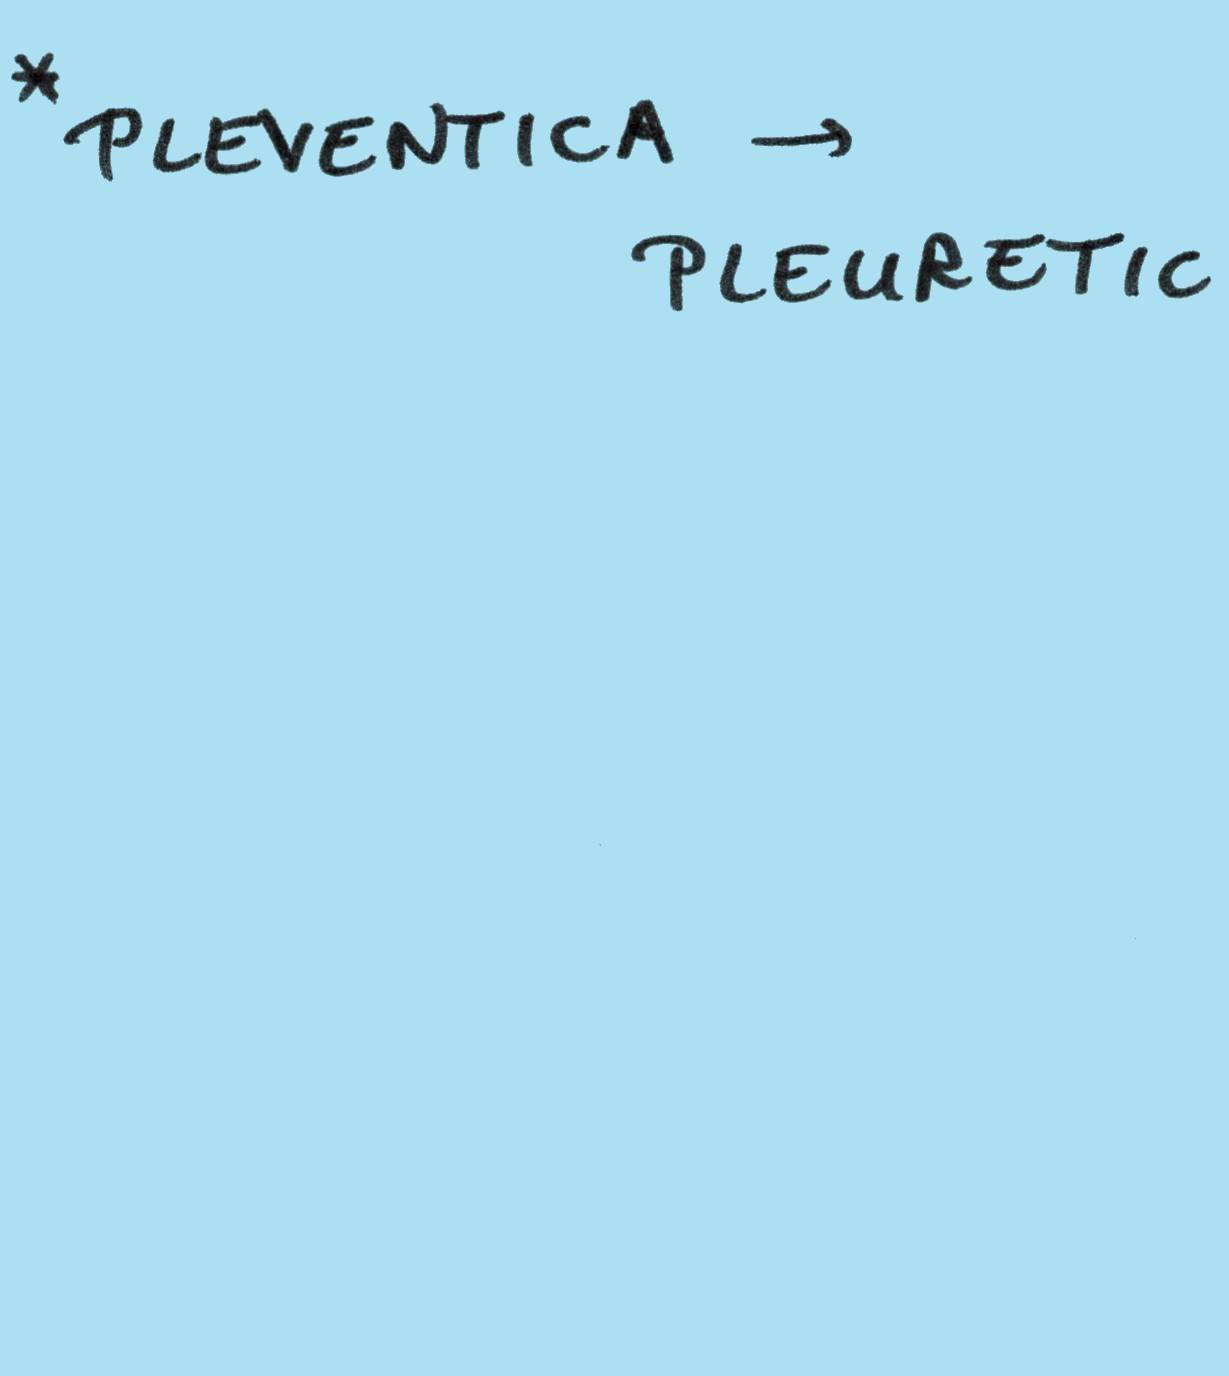 *PLEVENTICA →
PLEURETIC